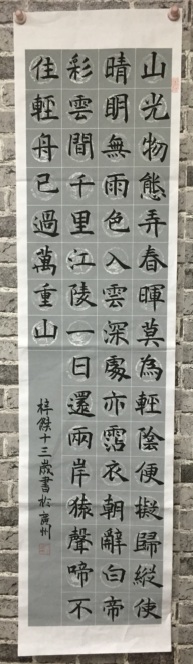 山光物態弄春暉莫為輕陰便擬歸縱使
晴明無雨色入雲深處亦霑衣朝辭白帝
彩雲間千里江陵一日還兩岸猿聲啼不
住輕舟已過萬重山
梓傑十三歲書於廣州